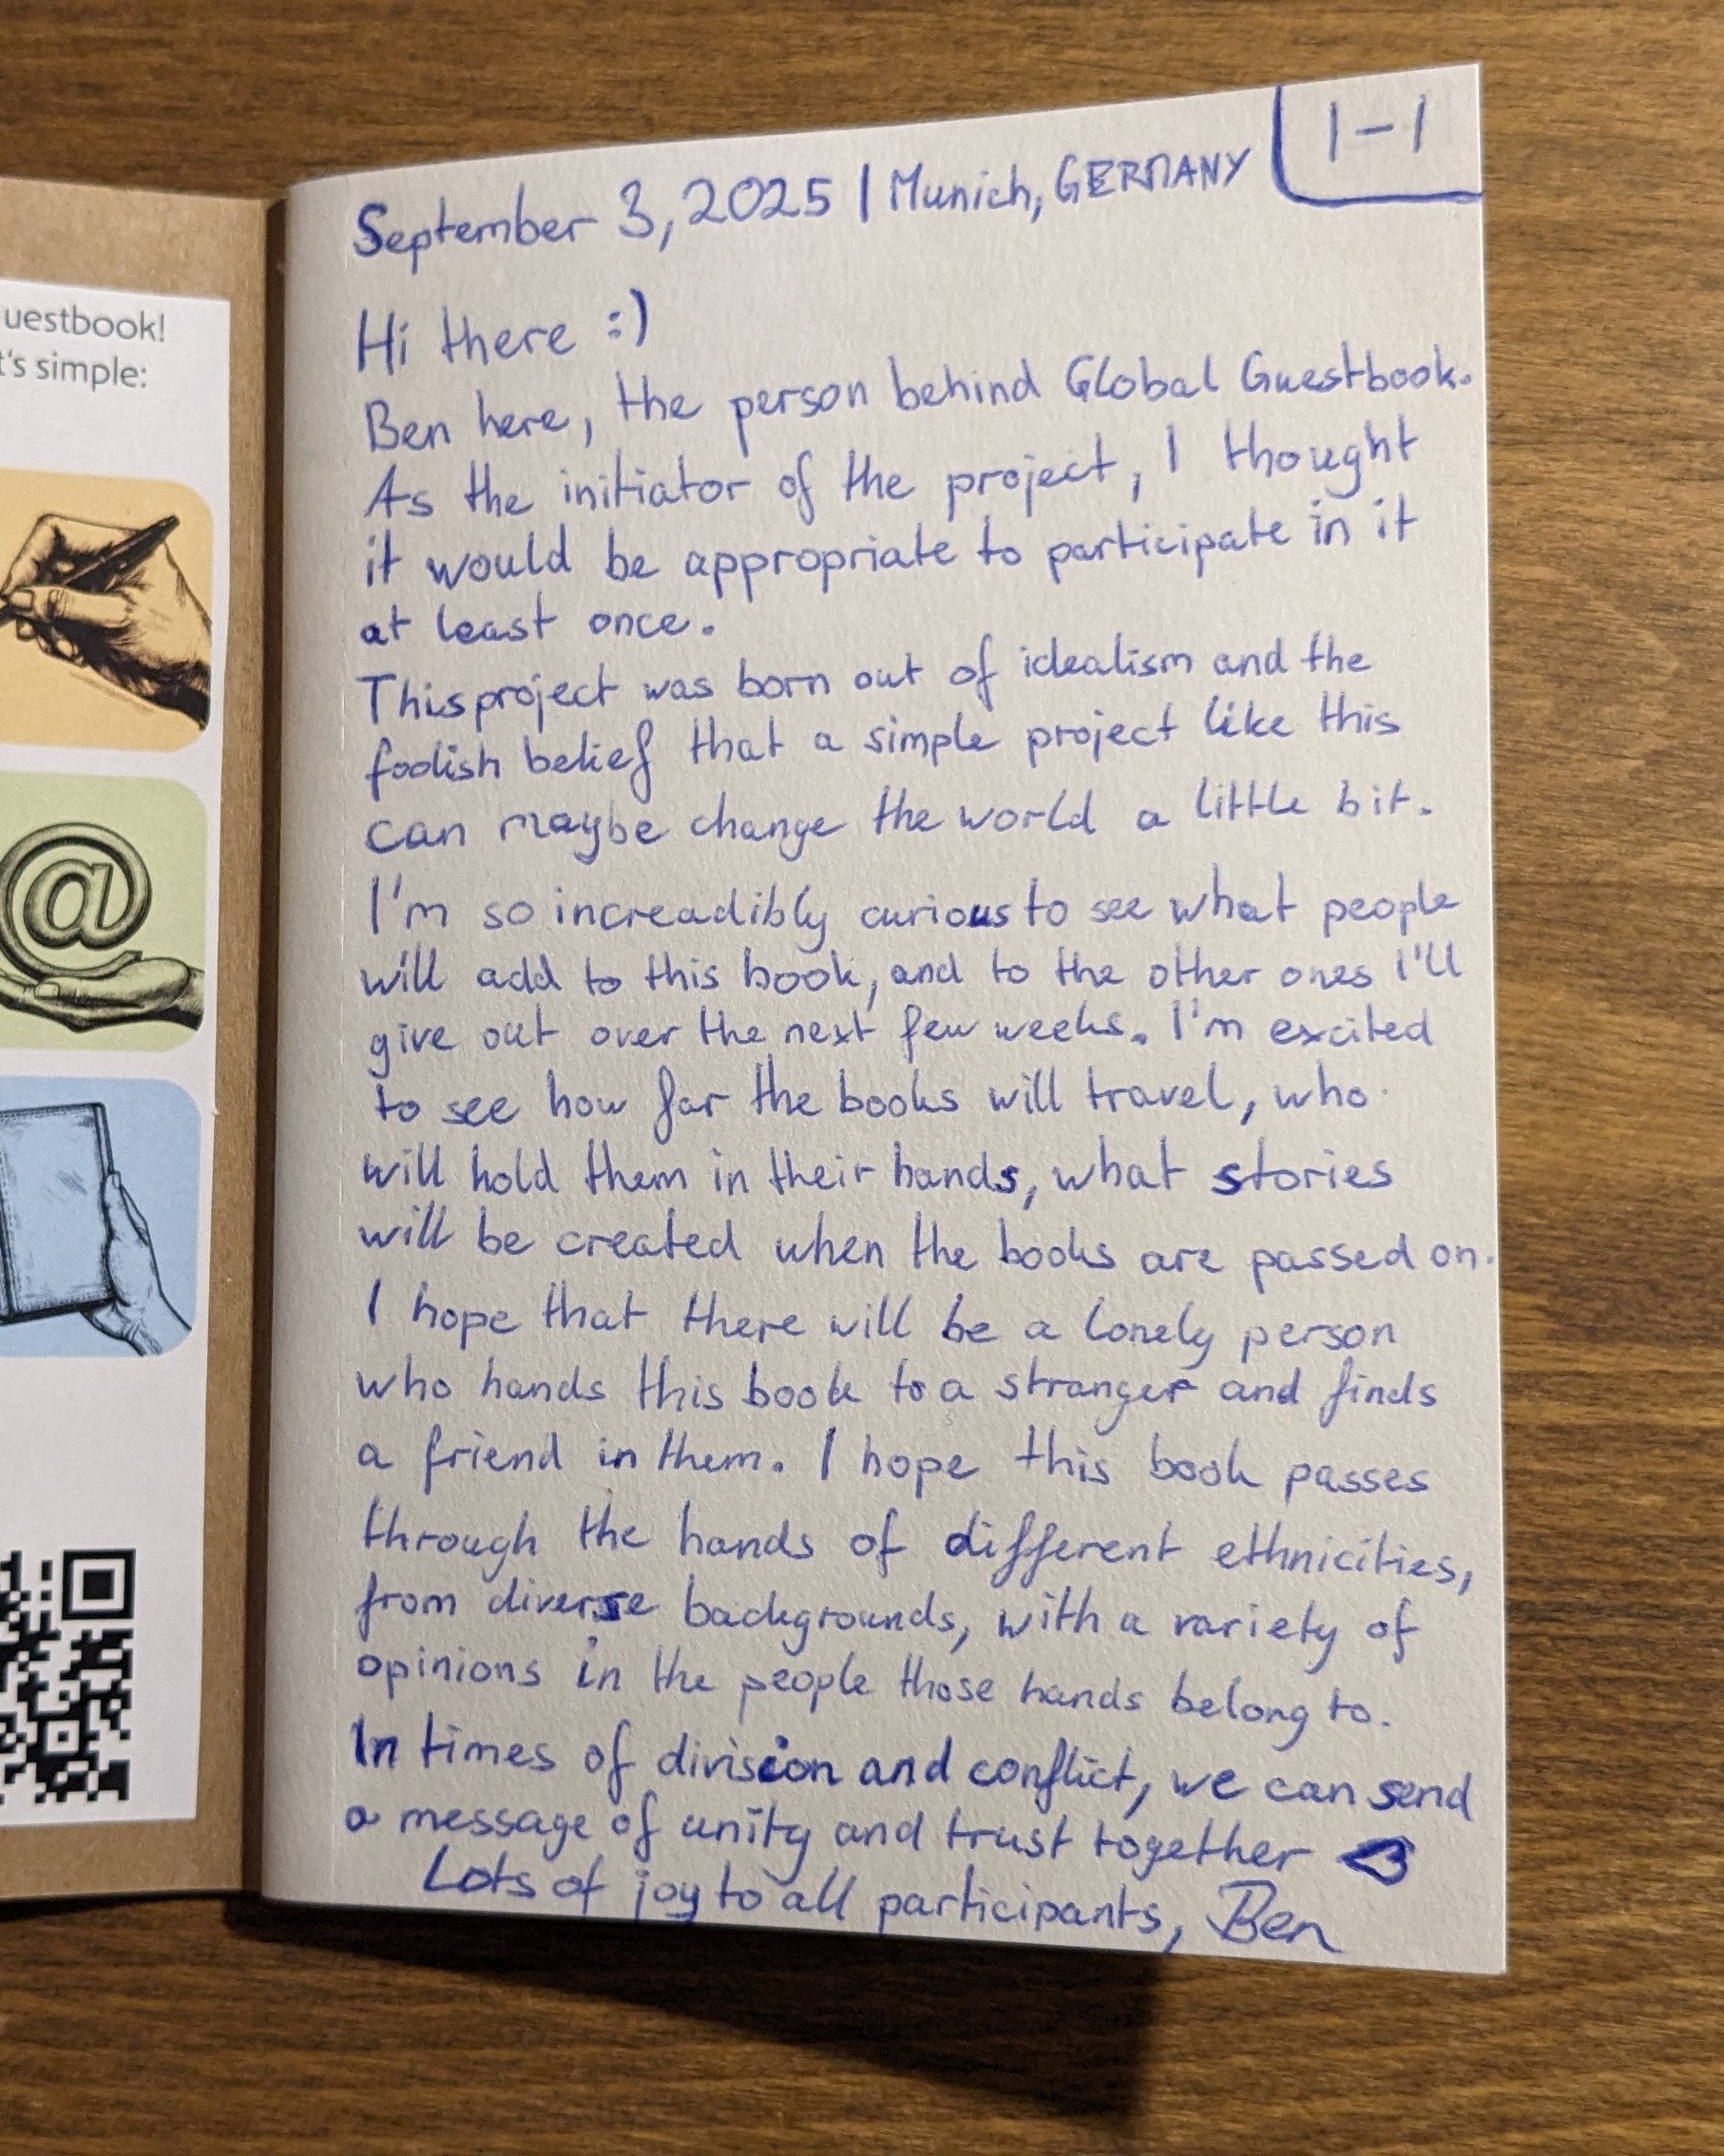 uestbook!
t's simple:
1-1
September 3, 2025 | Munich, GERMANY
Hi there :)
Ben here, the person behind Global Guestbook.
As the initiator of the project, I thought
it would be appropriate to participate in it
at least once.
This project was born out of idealism and the
foolish belief that a simple project like this
can maybe change the world a little bit.
I'm so increadibly curious to see what people
will add to this book, and to the other ones I'll
give out over the next few weeks. I'm excited
to see how far the books will travel, who
will hold them in their hands, what stories
will be created when the books are passed on.
I hope that there will be a lonely person
who hands this book to a stranger and finds
a friend in them. I hope this book passes
through the hands of different ethnicities,
from diverse backgrounds, with a variety of
opinions in the people those hands belong to.
In times of division and conflict, we can send
a message of unity and trust together <3
Lots of joy to all participants, Ben